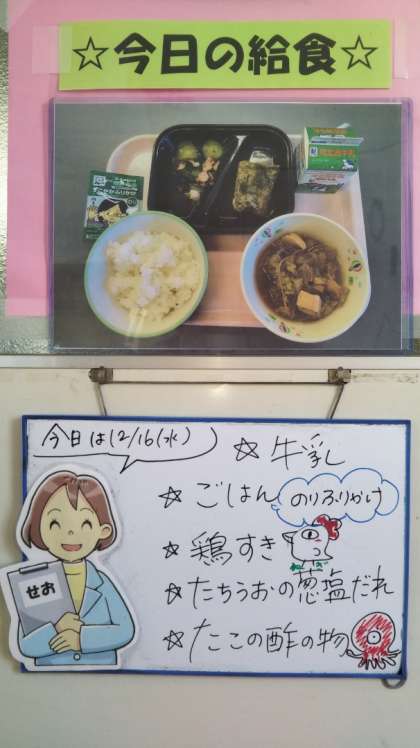 ☆今日の給食☆
今日は12/16(水)
☆牛乳
☆ごはん
のりふりかけ
☆鶏すき
☆たちうおの葱塩だれ
☆たこの酢の物
せお